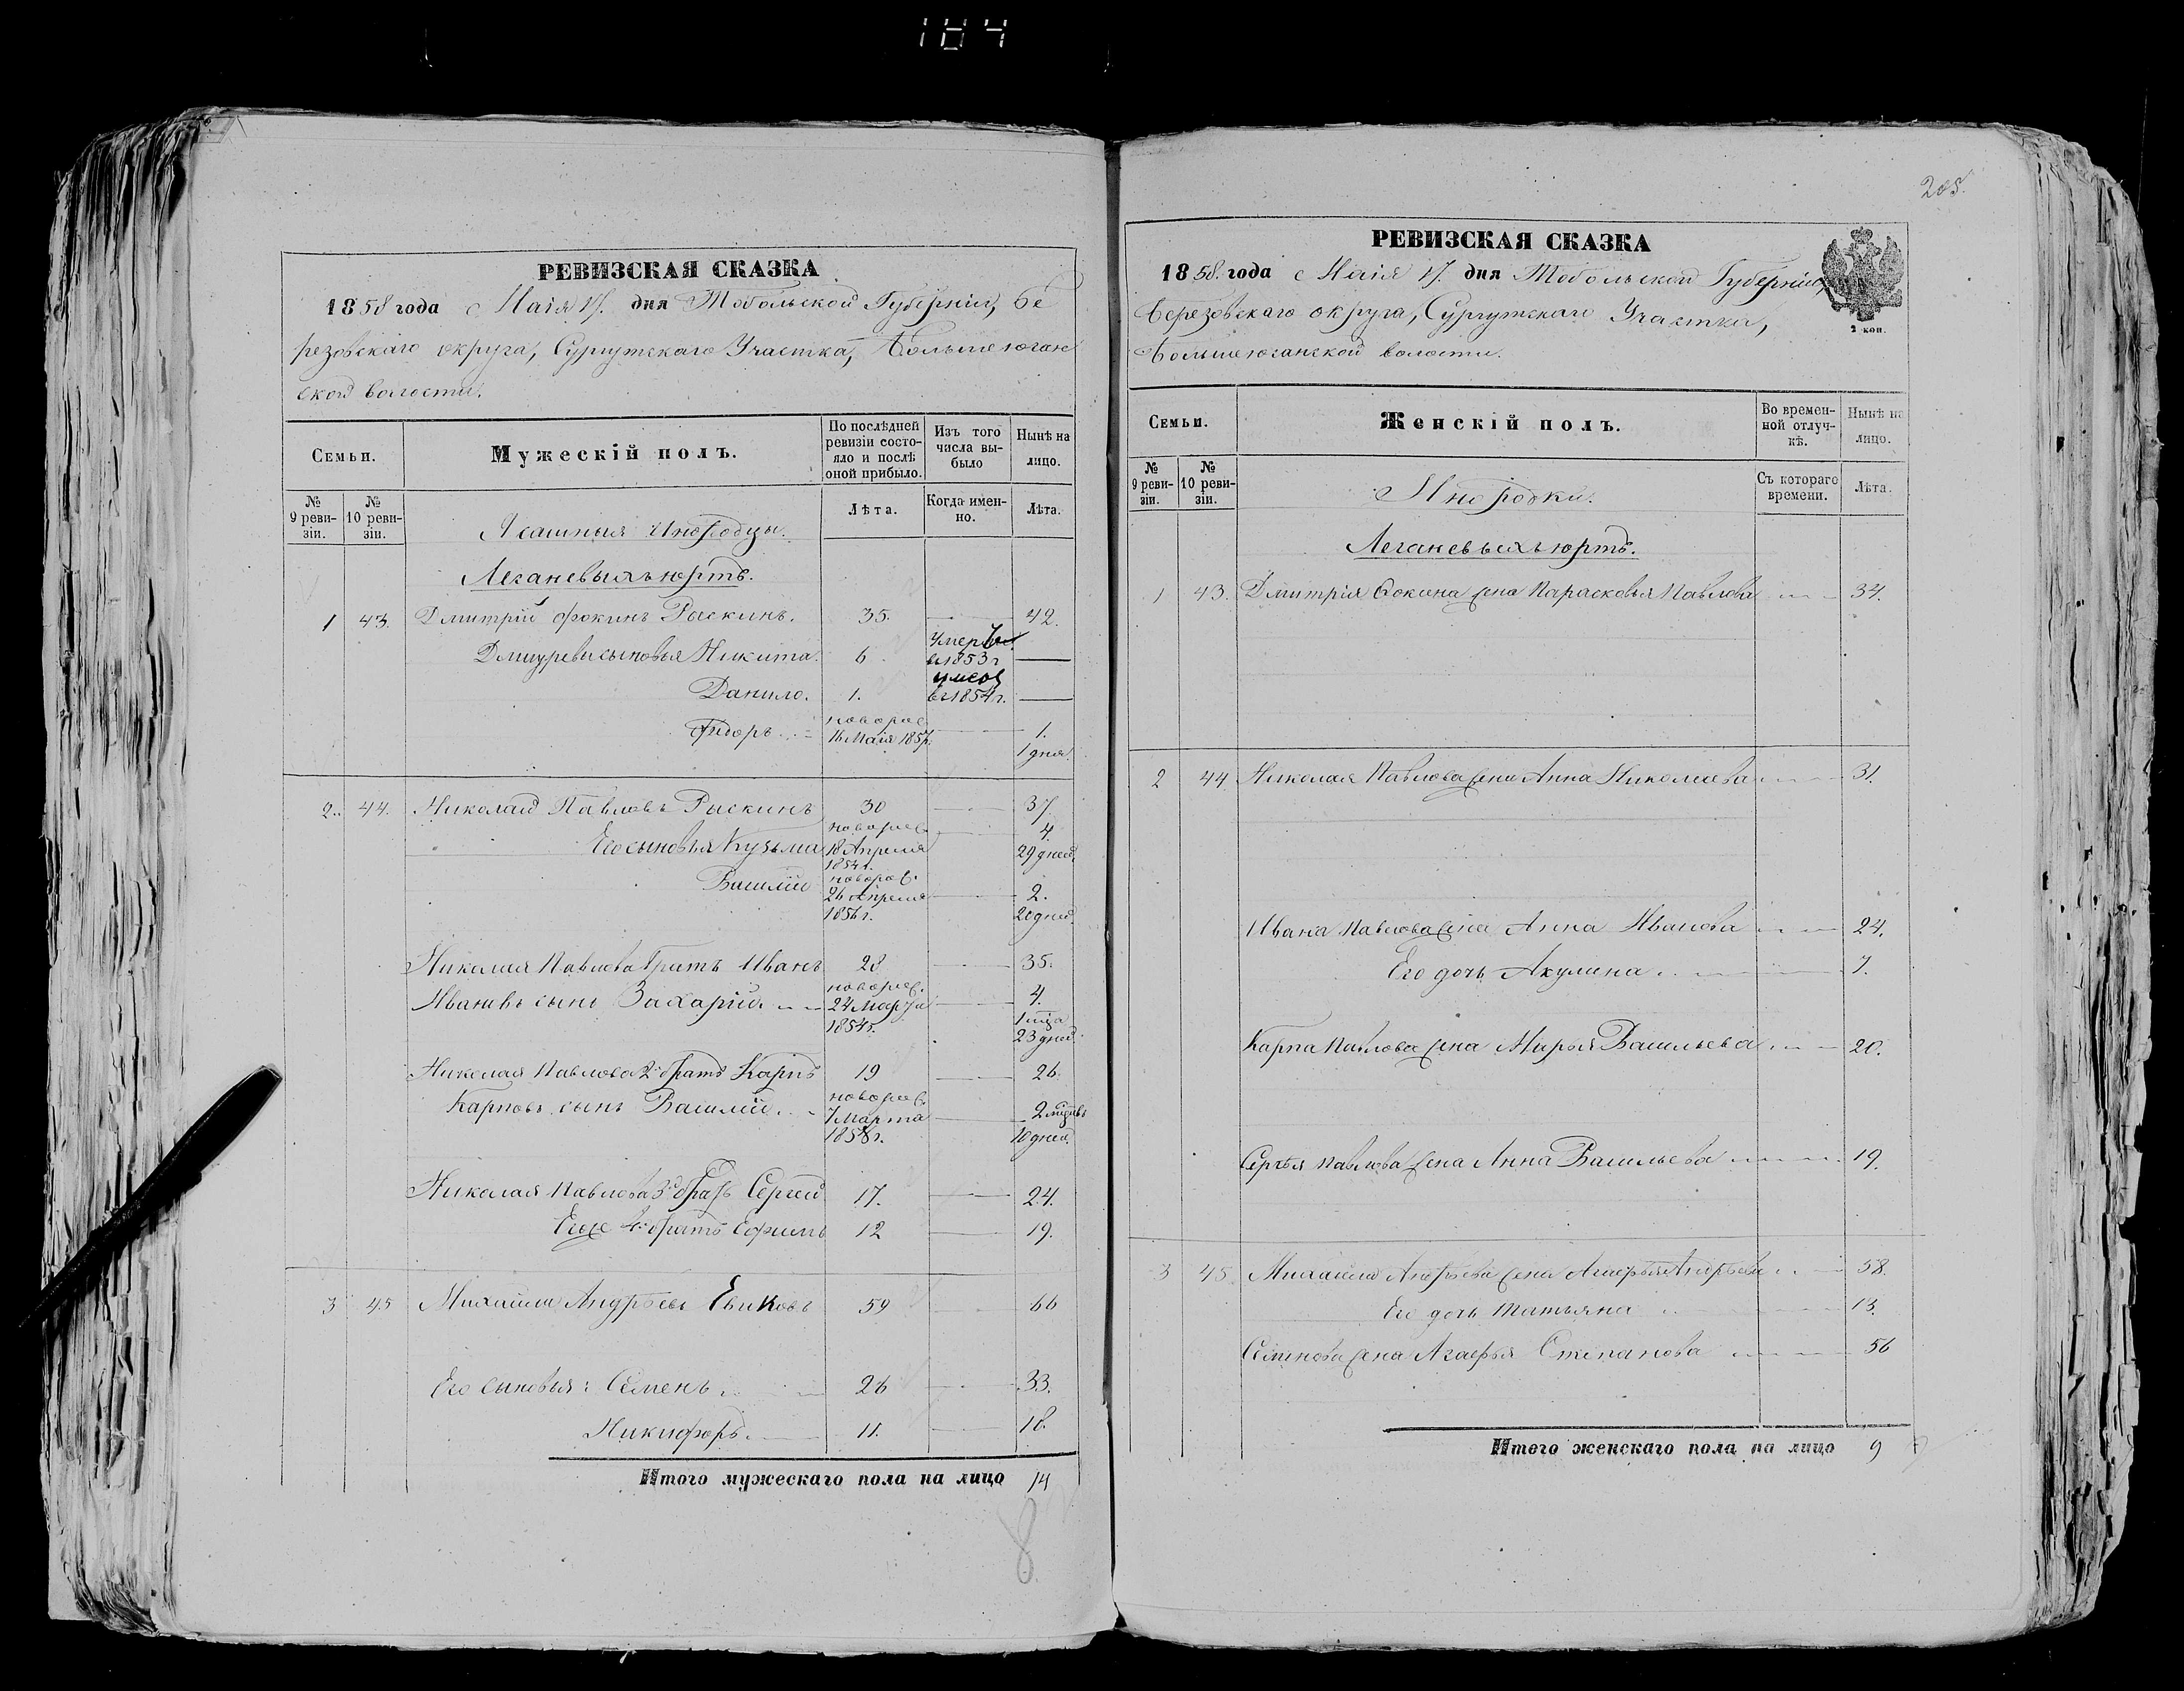 184
РЕВИЗСКАЯ СКАЗКА
1858 года Маія 17. дня Тобольской Губерніи, Бе
резовскаго округа, Сургутскаго Участка, Большеюган
ской волости.
Семьи.
Мужескій полъ.
По послѣдней ревизіи состояло и послѣ оной прибыло.
Изъ того числа выбыло
Нынѣ на лицо.
№ 9 ревизіи.
№ 10 ревизіи.
Лѣта.
Когда именно.
Лѣта.
Ясашныя Инородцы.
Леганевыхъ юртъ.
1 43. Дмитрій Фокинъ Рыскинъ. 35. 42.
сыновья Никита. 6 умеръ въ 1853 г
Данило. 1. въ 1854 г.
Фидоръ новорож. 16 Маія 1857 г. 1. 1 дня.
2. 44. Николай Павловъ Рыскинъ 30 37.
Его сыновья Кузьма новорож. 18 Апреля 1854 г. 4. 29 дней.
Василій новорож. 26 Апреля 1856 г. 2. 20 дней.
Николая Павлова братъ Иванъ 28 35.
Ивановъ сынъ Захарій новорож. 24 Марта 1854 г. 4. 1 мца 23 дней.
Николая Павлова 2й братъ Карпъ 19 26.
Карповъ сынъ Василій новорож. 7 Марта 1858 г. 2 мцовъ 10 дней.
Николая Павлова 3й братъ Сергей 17. 24.
Егоже 4й братъ Ефимъ 12 19.
3 45 Михайло Андреевъ 59 66
Его сыновья: Семенъ 26 33.
Никифоръ. 11. 18.
Итого мужескаго пола на лицо 14
8
205.
РЕВИЗСКАЯ СКАЗКА
1858. года Маія 17. дня Тобольской Губерніи,
Березовскаго округа, Сургутскаго Участка,
Большеюганской волости.
2 коп.
Семьи.
Женскій полъ.
Во временной отлучкѣ.
Нынѣ на лицо.
№ 9 ревизіи.
№ 10 ревизіи.
Съ котораго времени.
Лѣта.
Инородки.
Леганевыхъ юртъ.
1 43. Дмитрія Фокина жена Парасковья Павлова 34.
2 44 Николая Павлова жена Анна Николаева 31.
Ивана Павлова жена Анна Иванова 24.
Его дочь Акулина 7.
Карпа Павлова жена Марья Васильева 20.
Сергѣя Павлова жена Анна Васильева 19.
3 45 Михайла Андрѣева жена Агафья Андрѣева 58.
Его дочь Татьяна 13.
Семенова жена Агафья Степанова 56
Итого женскаго пола на лицо 9